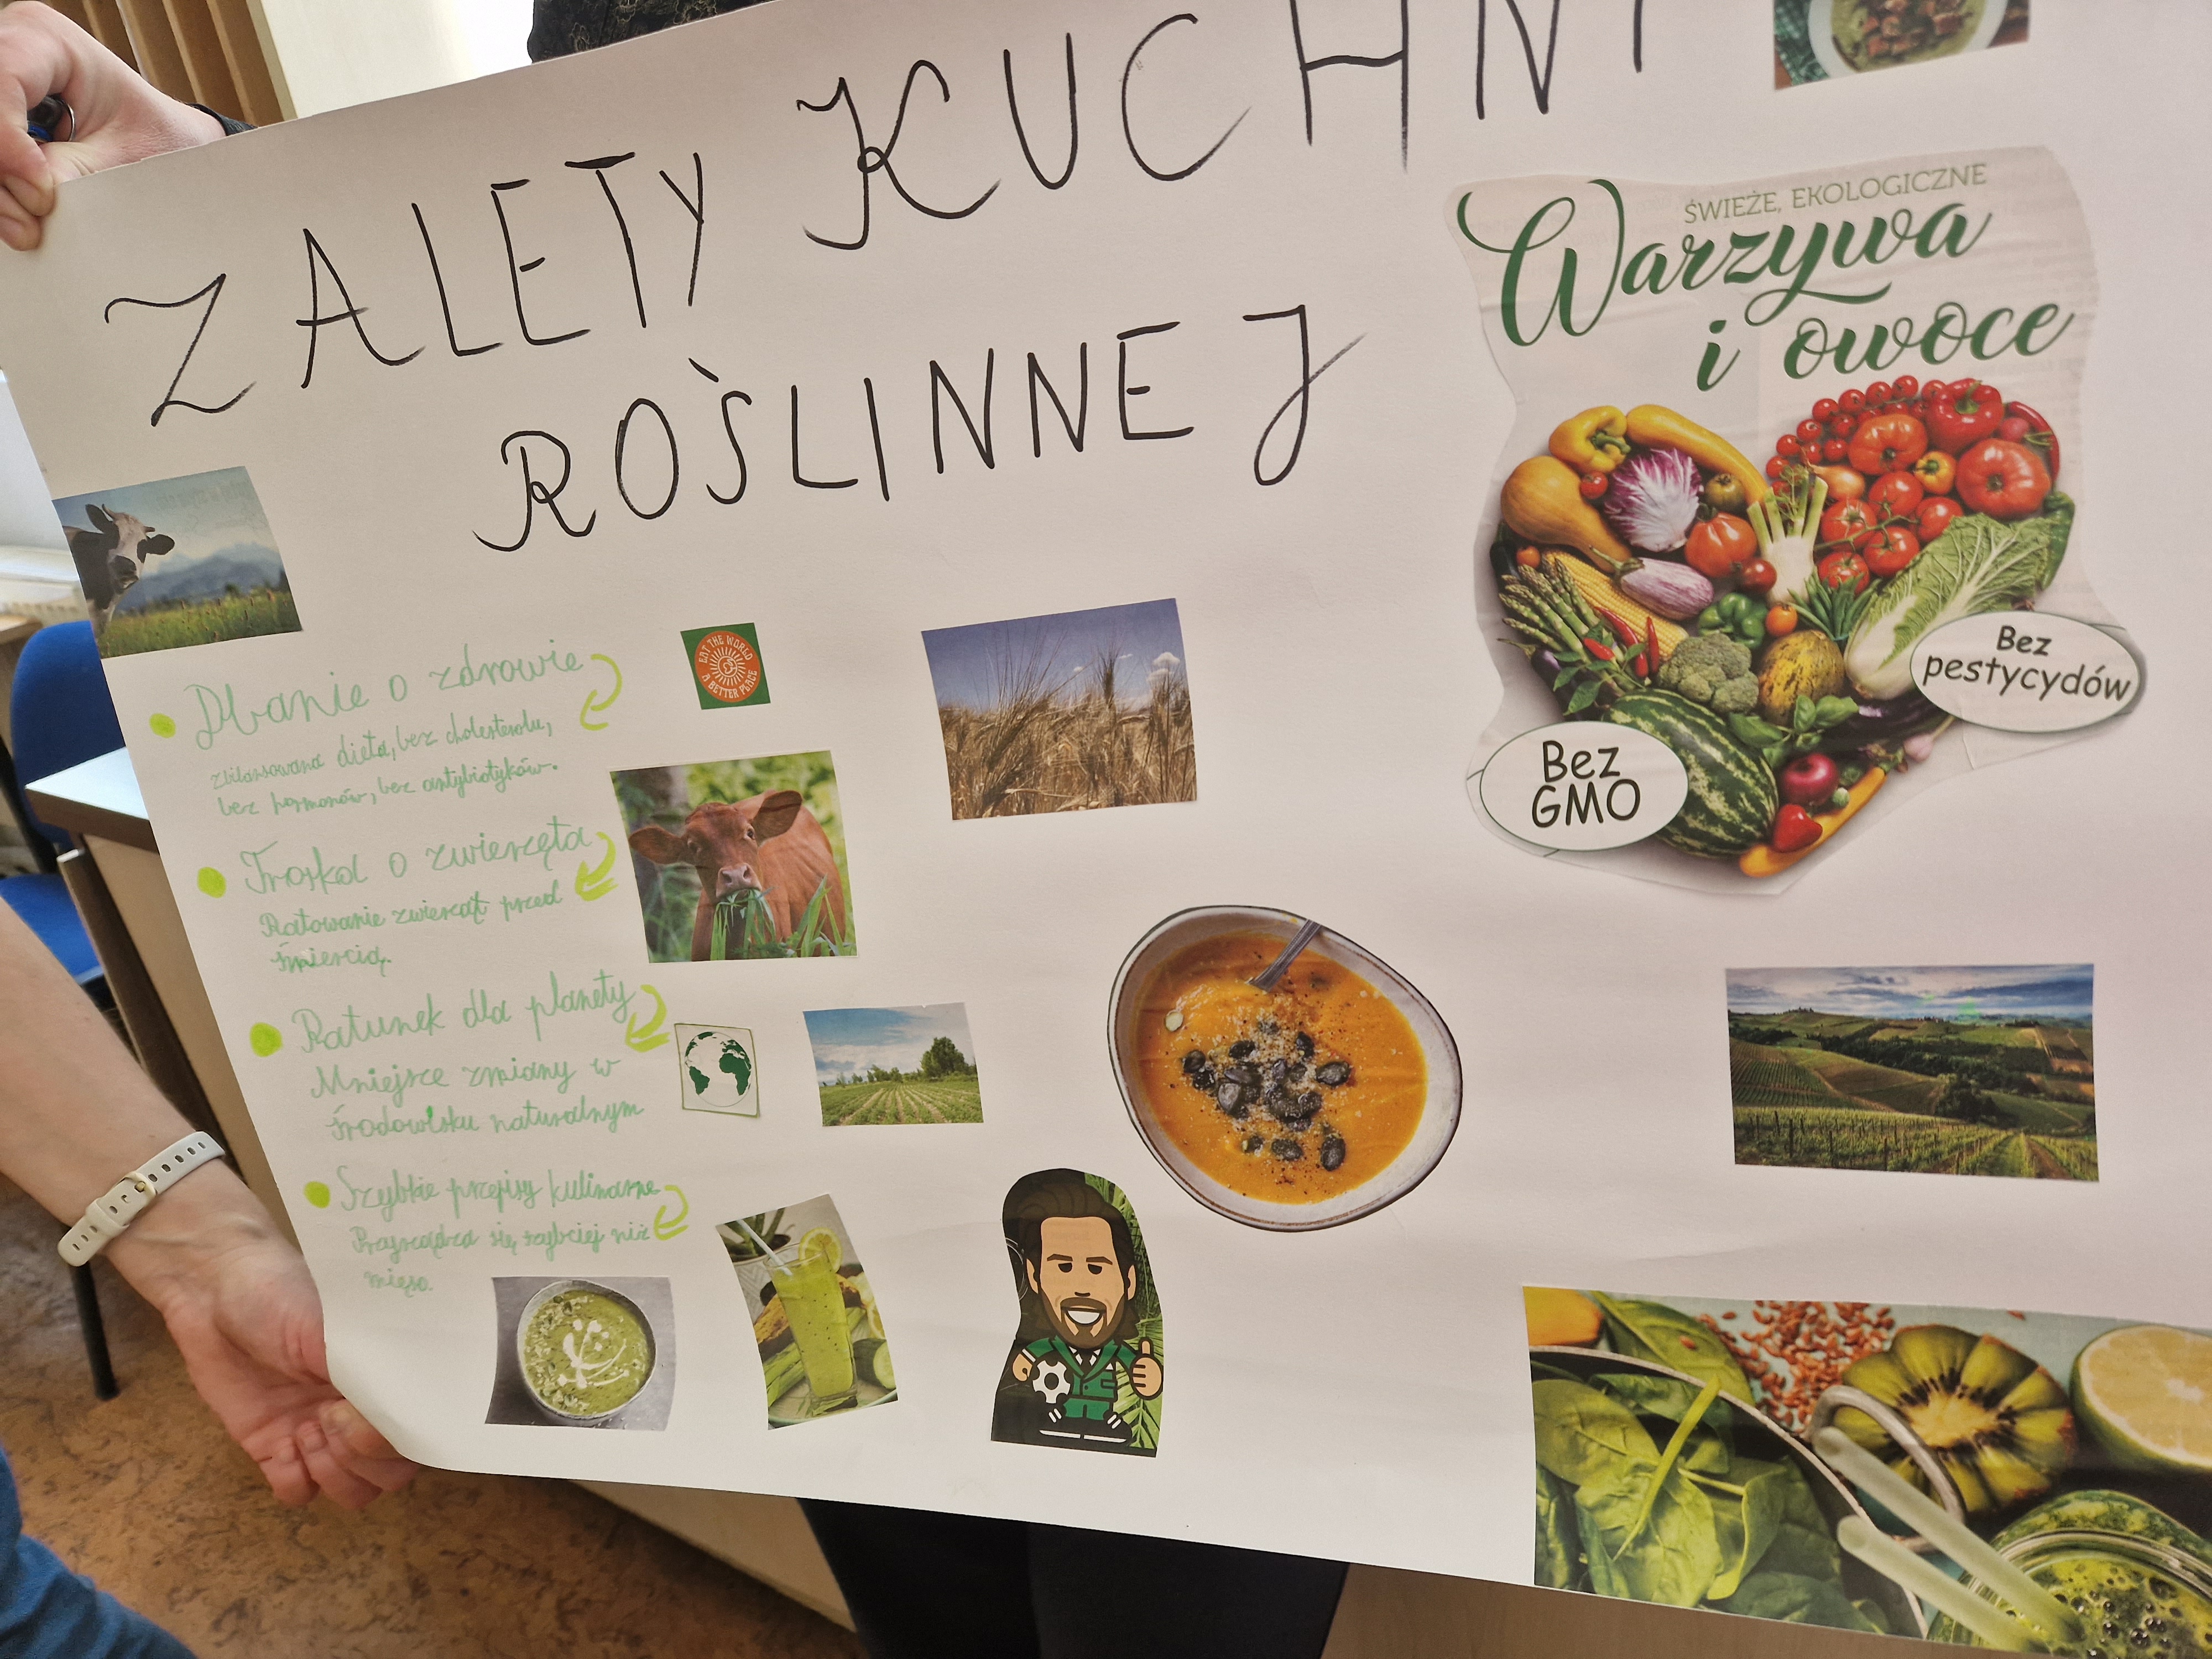 ZALETY KUCHNI
ROŚLINNEJ
ŚWIEŻE, EKOLOGICZNE
Warzywa
i owoce
Bez
pestycydów
Bez
GMO
Dbanie o zdrowie
zbilansowana dieta, bez cholesterolu,
bez hormonów, bez antybiotyków.
EAT THE WORLD
A BETTER PLACE
Troska o zwierzęta
Ratowanie zwierząt przed
śmiercią.
Ratunek dla planety
Mniejsze zmiany w
środowisku naturalnym
Szybkie przepisy kulinarne
Przyrządza się szybciej niż
mięso.